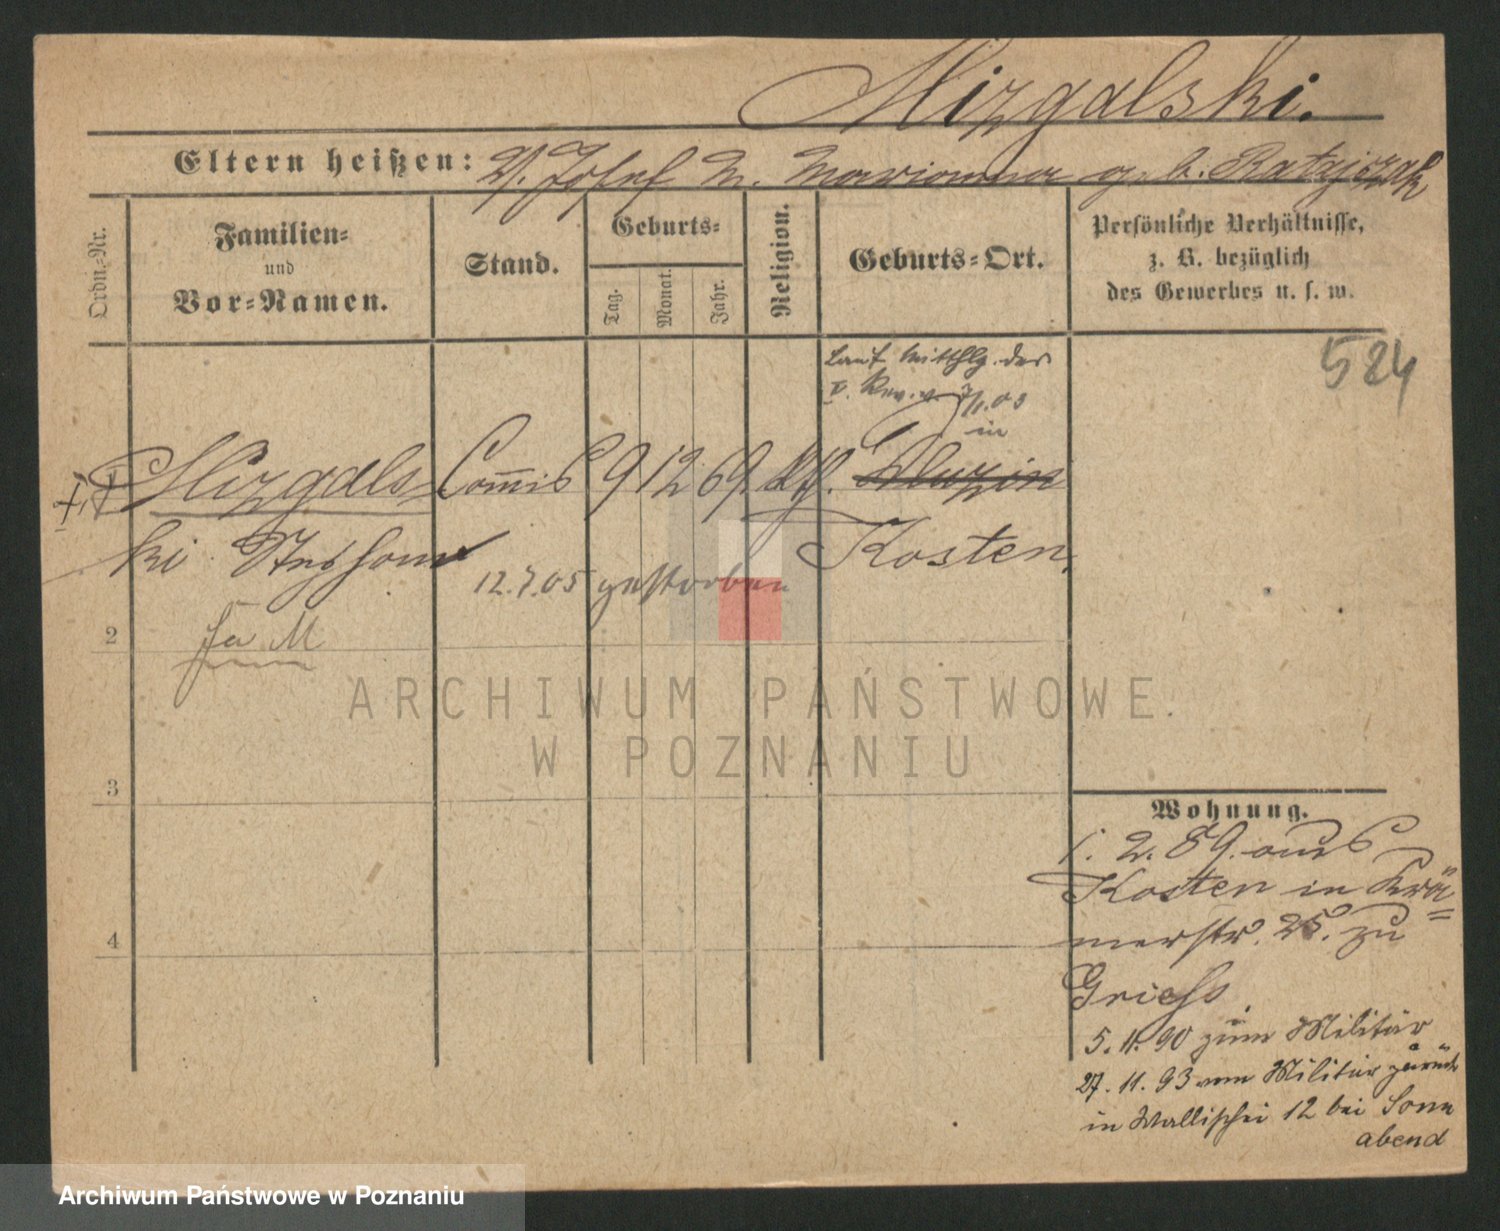 Mizgalski.
Eltern heißen: V. Josef M. Marianna geb. Ratajczak
Ordn.-Nr.
Familien-
und
Vor-Namen.
Stand.
Geburts-
Tag.
Monat.
Jahr.
Religion.
Geburts-Ort.
Persönliche Verhältnisse,
z. B. bezüglich
des Gewerbes u. s. w.
524
Laut Mitthlg. des
V. Rev. v.
in
Mizgals- Commis 9 12 69. kth.
ki
Kosten.
12.7.05 gestorben
2
3
4
Wohnung.
1. 2. 89. aus
Kosten in Krä-
merstr. 25. zu
Griess
5. 11. 90 zum Militär
27. 11. 93 vom Militär zurück
in Wallischei 12 bei Sonn
abend
ARCHIWUM PAŃSTWOWE
W POZNANIU
Archiwum Państwowe w Poznaniu